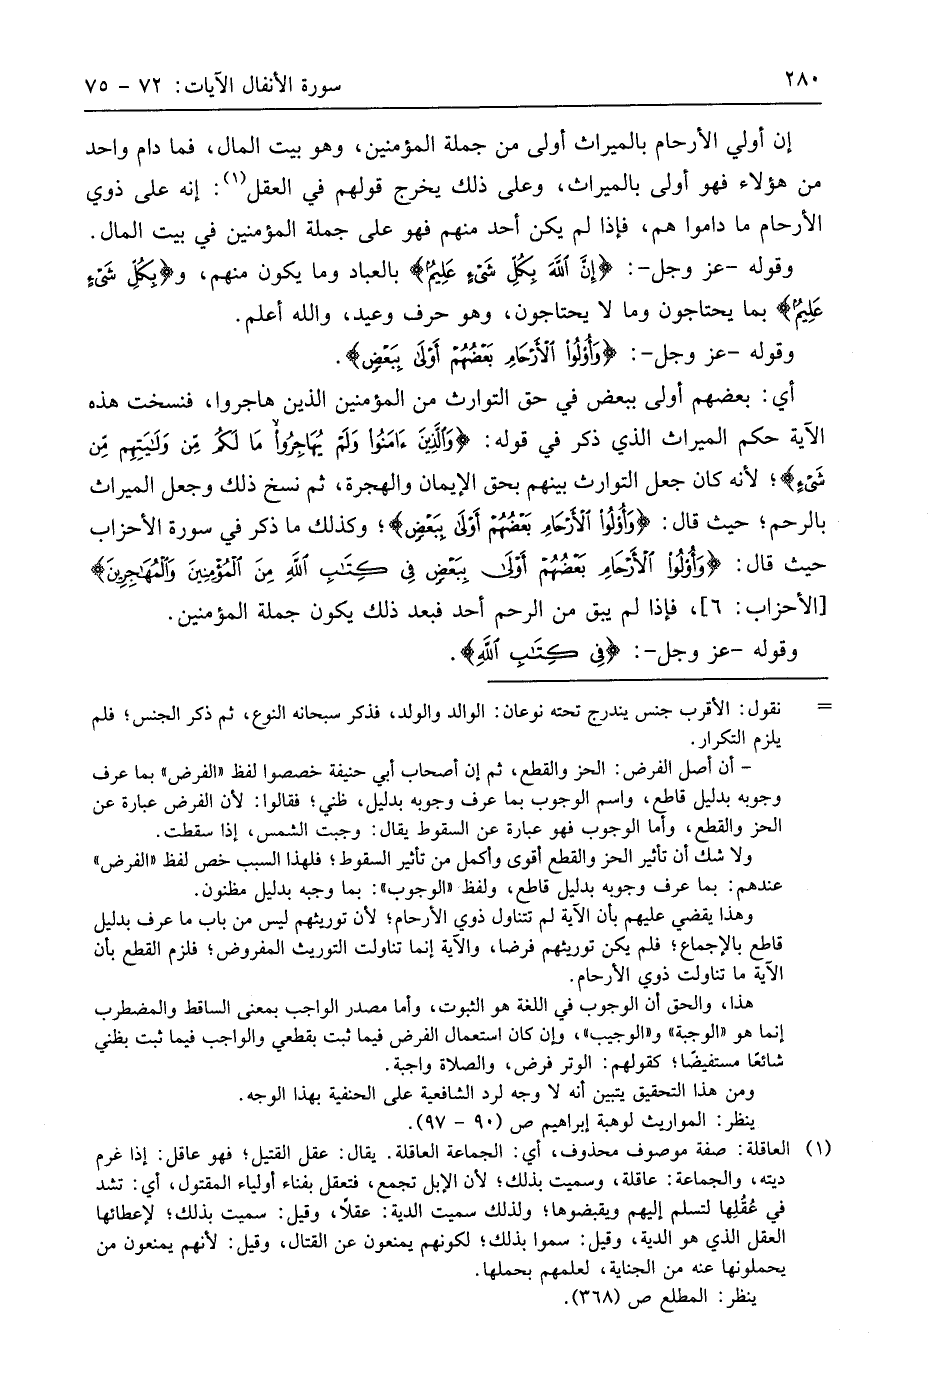 ٢٨٠
سورة الأنفال الآيات: ٧٢ - ٧٥
إن أولي الأرحام بالميراث أولى من جملة المؤمنين، وهو بيت المال، فما دام واحد
من هؤلاء فهو أولى بالميراث، وعلى ذلك يخرج قولهم في العقل(١): إنه على ذوي
الأرحام ما داموا هم، فإذا لم يكن أحد منهم فهو على جملة المؤمنين في بيت المال.
وقوله -عز وجل-: ﴿إِنَّ ٱللَّهَ بِكُلِّ شَىْءٍ عَلِيمٌ﴾ بالعباد وما يكون منهم، و﴿بِكُلِّ شَىْءٍ
عَلِيمٌ﴾ بما يحتاجون وما لا يحتاجون، وهو حرف وعيد، والله أعلم.
وقوله -عز وجل-: ﴿وَأُوْلُوا۟ ٱلْأَرْحَامِ بَعْضُهُمْ أَوْلَىٰ بِبَعْضٍ﴾.
أي: بعضهم أولى ببعض في حق التوارث من المؤمنين الذين هاجروا، فنسخت هذه
الآية حكم الميراث الذي ذكر في قوله: ﴿وَٱلَّذِينَ ءَامَنُوا۟ وَلَمْ يُهَاجِرُوا۟ مَا لَكُم مِّن وَلَـٰيَتِهِم مِّن
شَىْءٍ﴾؛ لأنه كان جعل التوارث بينهم بحق الإيمان والهجرة، ثم نسخ ذلك وجعل الميراث
بالرحم؛ حيث قال: ﴿وَأُوْلُوا۟ ٱلْأَرْحَامِ بَعْضُهُمْ أَوْلَىٰ بِبَعْضٍ﴾؛ وكذلك ما ذكر في سورة الأحزاب
حيث قال: ﴿وَأُوْلُوا۟ ٱلْأَرْحَامِ بَعْضُهُمْ أَوْلَىٰ بِبَعْضٍ فِى كِتَـٰبِ ٱللَّهِ مِنَ ٱلْمُؤْمِنِينَ وَٱلْمُهَـٰجِرِينَ﴾
[الأحزاب: ٦]، فإذا لم يبق من الرحم أحد فبعد ذلك يكون جملة المؤمنين.
وقوله -عز وجل-: ﴿فِى كِتَـٰبِ ٱللَّهِ﴾.
= نقول: الأقرب جنس يندرج تحته نوعان: الوالد والولد، فذكر سبحانه النوع، ثم ذكر الجنس؛ فلم
يلزم التكرار.
- أن أصل الفرض: الحز والقطع، ثم إن أصحاب أبي حنيفة خصصوا لفظ «الفرض» بما عرف
وجوبه بدليل قاطع، واسم الوجوب بما عرف وجوبه بدليل، ظني؛ فقالوا: لأن الفرض عبارة عن
الحز والقطع، وأما الوجوب فهو عبارة عن السقوط يقال: وجبت الشمس، إذا سقطت.
ولا شك أن تأثير الحز والقطع أقوى وأكمل من تأثير السقوط؛ فلهذا السبب خص لفظ «الفرض»
عندهم: بما عرف وجوبه بدليل قاطع، ولفظ «الوجوب»: بما وجبه بدليل مظنون.
وهذا يقضي عليهم بأن الآية لم تتناول ذوي الأرحام؛ لأن توريثهم ليس من باب ما عرف بدليل
قاطع بالإجماع؛ فلم يكن توريثهم فرضا، والآية إنما تناولت التوريث المفروض؛ فلزم القطع بأن
الآية ما تناولت ذوي الأرحام.
هذا، والحق أن الوجوب في اللغة هو الثبوت، وأما مصدر الواجب بمعنى الساقط والمضطرب
إنما هو «الوجبة» و«الوجيب»، وإن كان استعمال الفرض فيما ثبت بقطعي والواجب فيما ثبت بظني
شائعًا مستفيضًا؛ كقولهم: الوتر فرض، والصلاة واجبة.
ومن هذا التحقيق يتبين أنه لا وجه لرد الشافعية على الحنفية بهذا الوجه.
ينظر: المواريث لوهبة إبراهيم ص (٩٠ - ٩٧).
(١) العاقلة: صفة موصوف محذوف، أي: الجماعة العاقلة. يقال: عقل القتيل؛ فهو عاقل: إذا غرم
ديته، والجماعة: عاقلة، وسميت بذلك؛ لأن الإبل تجمع، فتعقل بفناء أولياء المقتول، أي: تشد
في عُقُلِها لتسلم إليهم ويقبضوها؛ ولذلك سميت الدية: عقلًا، وقيل: سميت بذلك؛ لإعطائها
العقل الذي هو الدية، وقيل: سموا بذلك؛ لكونهم يمنعون عن القتال، وقيل: لأنهم يمنعون من
يحملونها عنه من الجناية، لعلمهم بحملها.
ينظر: المطلع ص (٣٦٨).